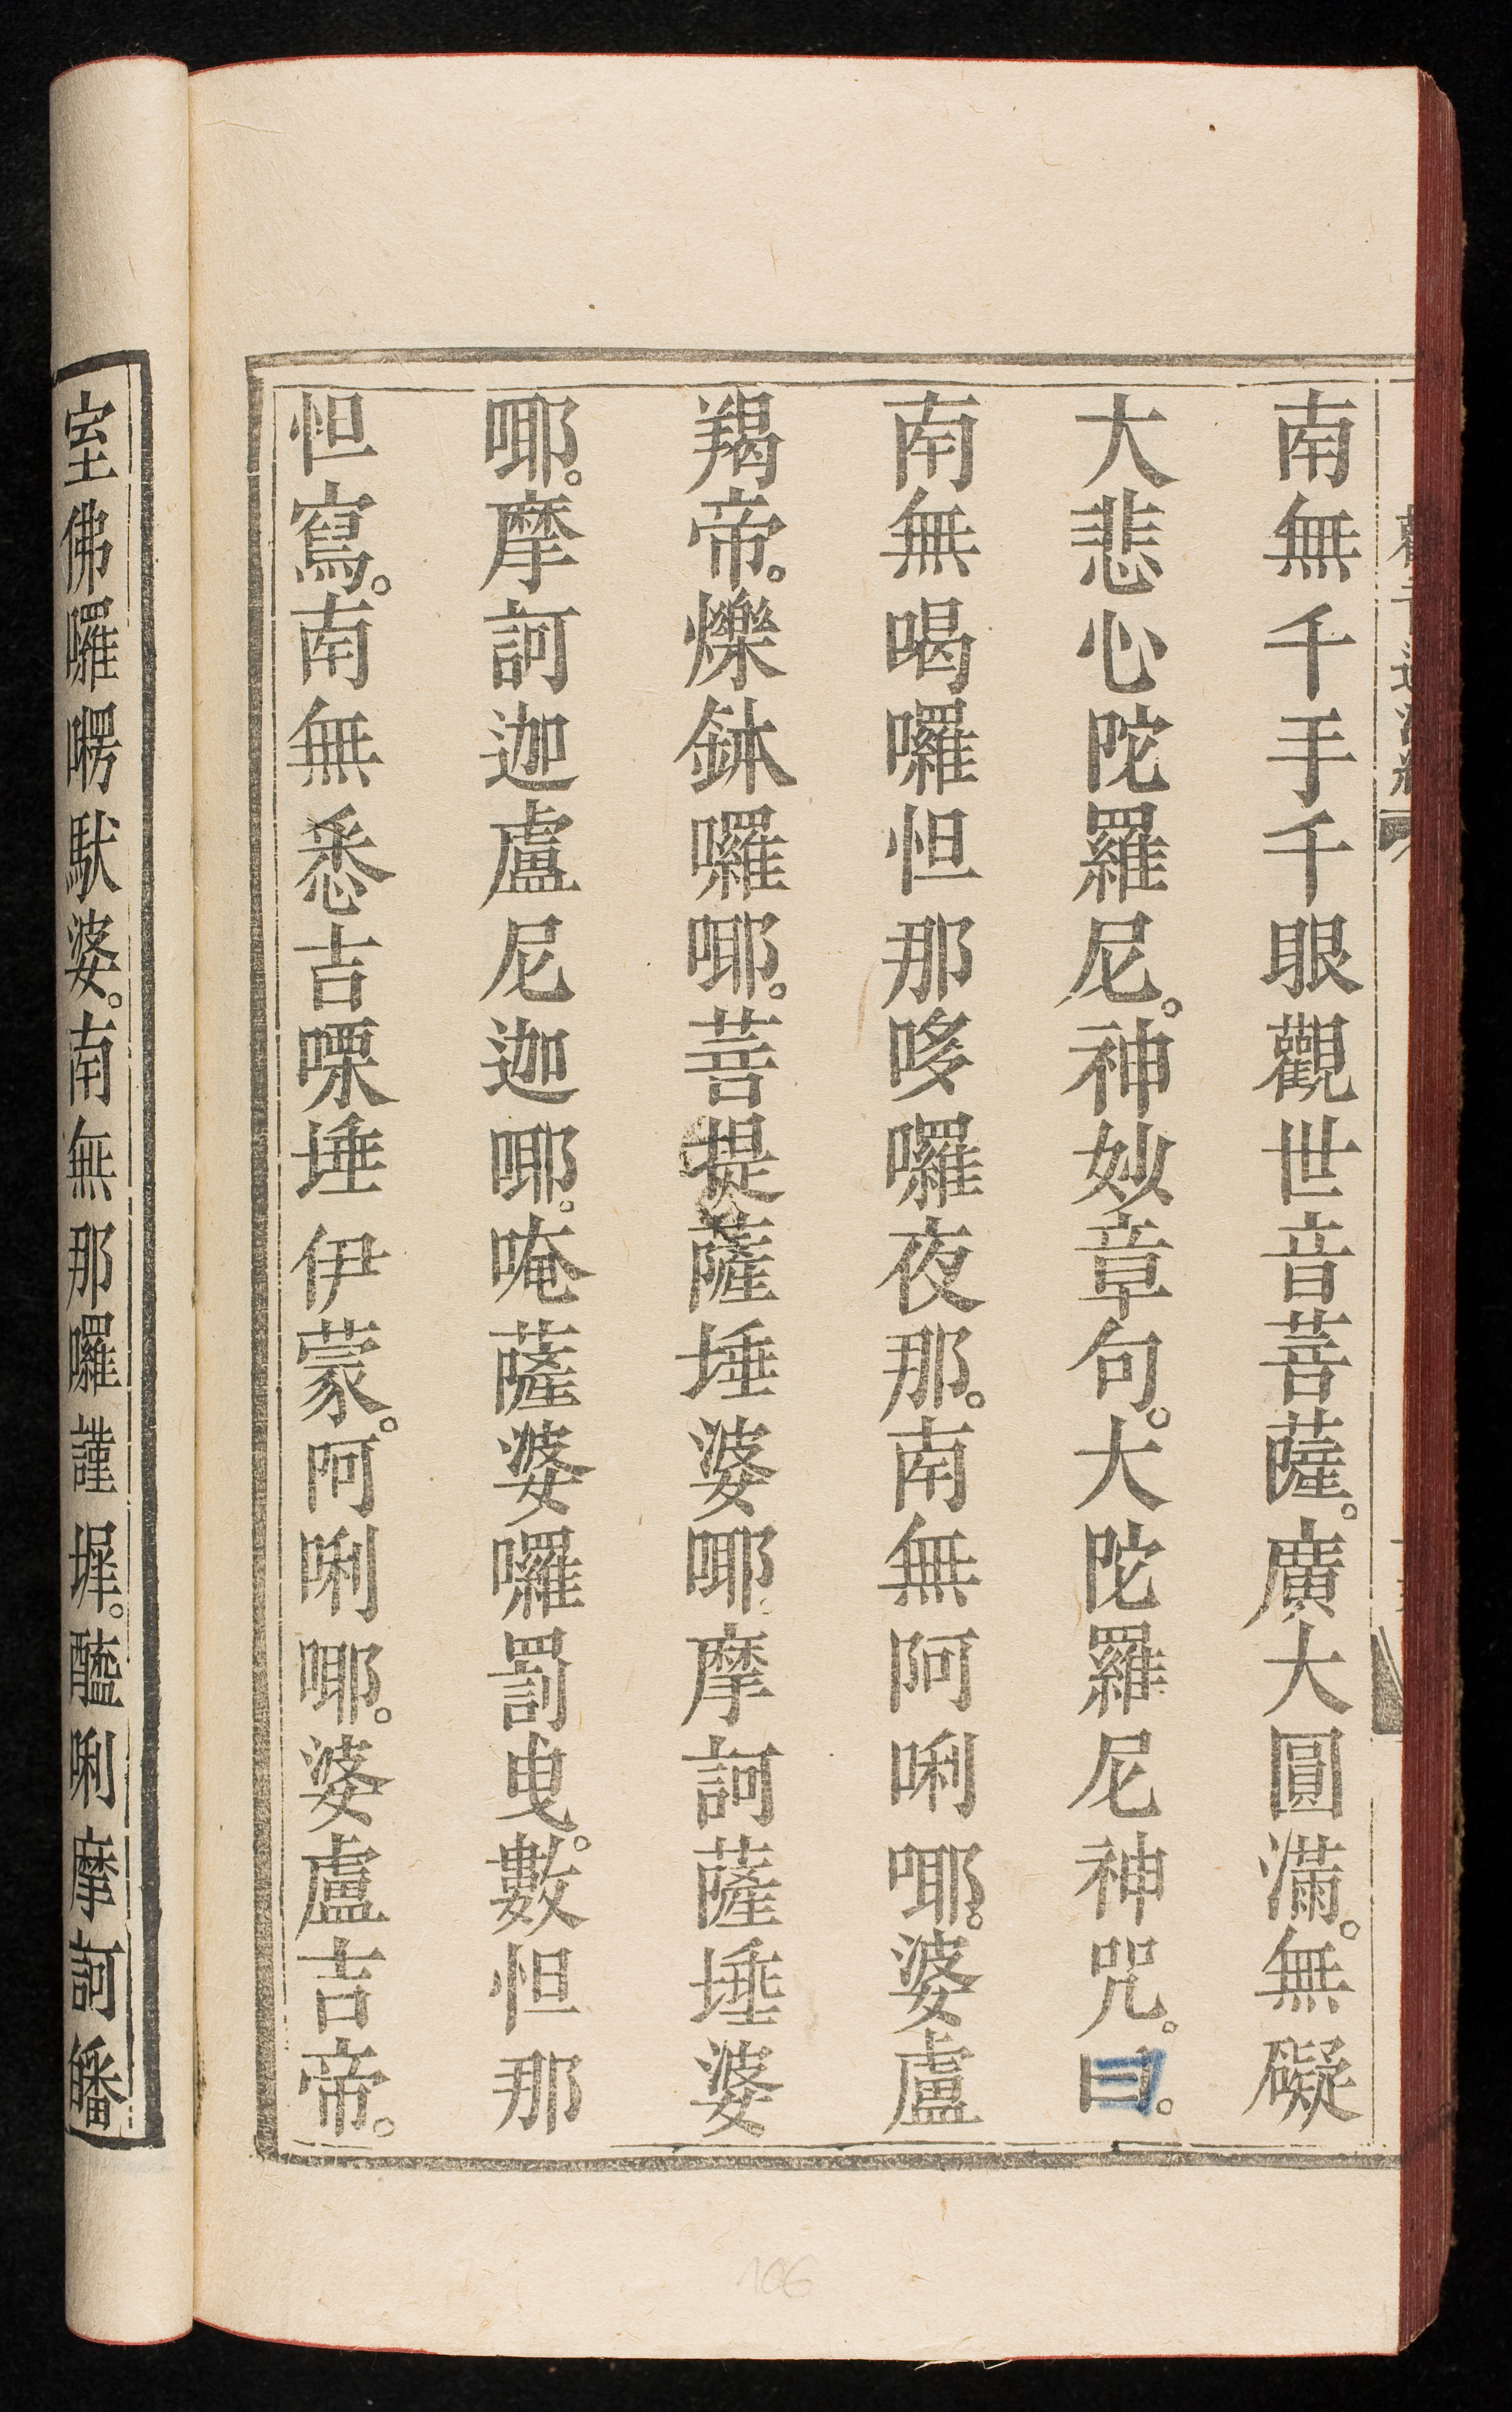 南無千手千眼觀世音菩薩。廣大圓滿。無礙
大悲心陀羅尼。神妙章句。大陀羅尼神咒。曰。
南無喝囉怛那哆囉夜那。南無阿唎㖿。婆盧
羯帝。爍鉢囉㖿。菩提薩埵婆㖿摩訶薩埵婆
㖿。摩訶迦盧尼迦㖿。唵薩婆囉罰曳。數怛那
怛寫。南無悉吉㗚埵伊蒙。阿唎㖿。婆盧吉帝。
室佛囉㘄馱婆。南無那囉謹墀。醯唎摩訶皤
106